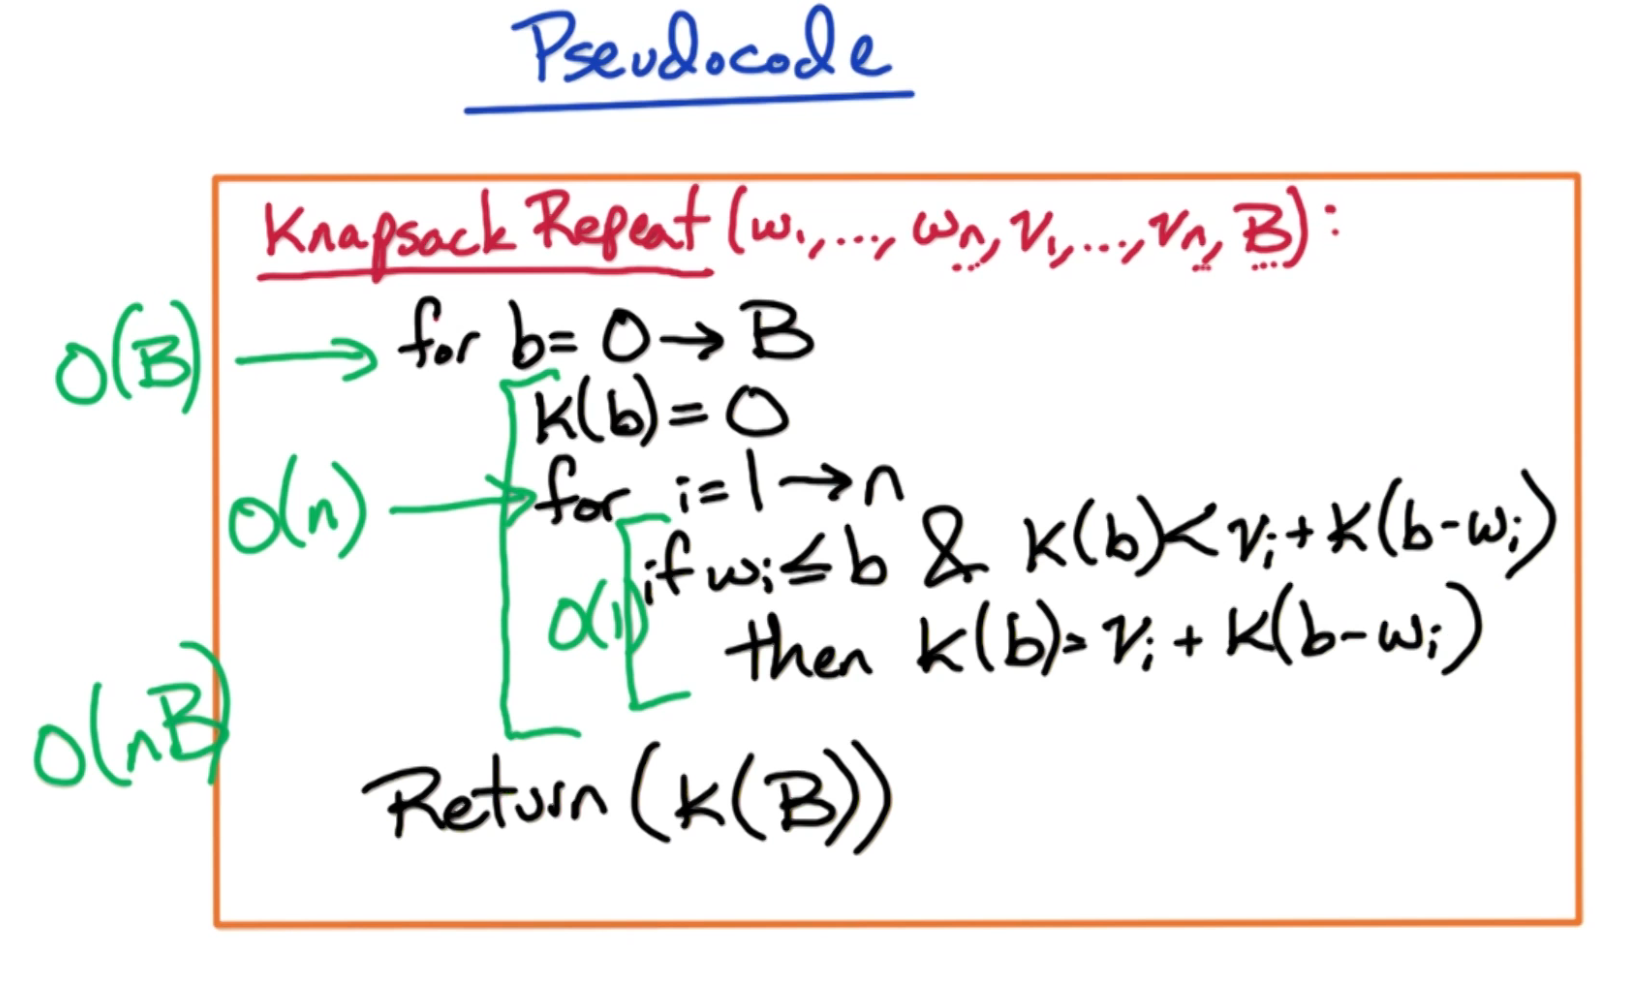 Pseudocode
Knapsack Repeat (w₁,...,wₙ,v₁,...,vₙ,B):
O(B) → for b= 0→B
K(b)=0
O(n) → for i=1→n
if wᵢ≤b & K(b)<vᵢ+K(b-wᵢ)
O(1)
then K(b)=vᵢ+K(b-wᵢ)
O(nB)
Return (K(B))